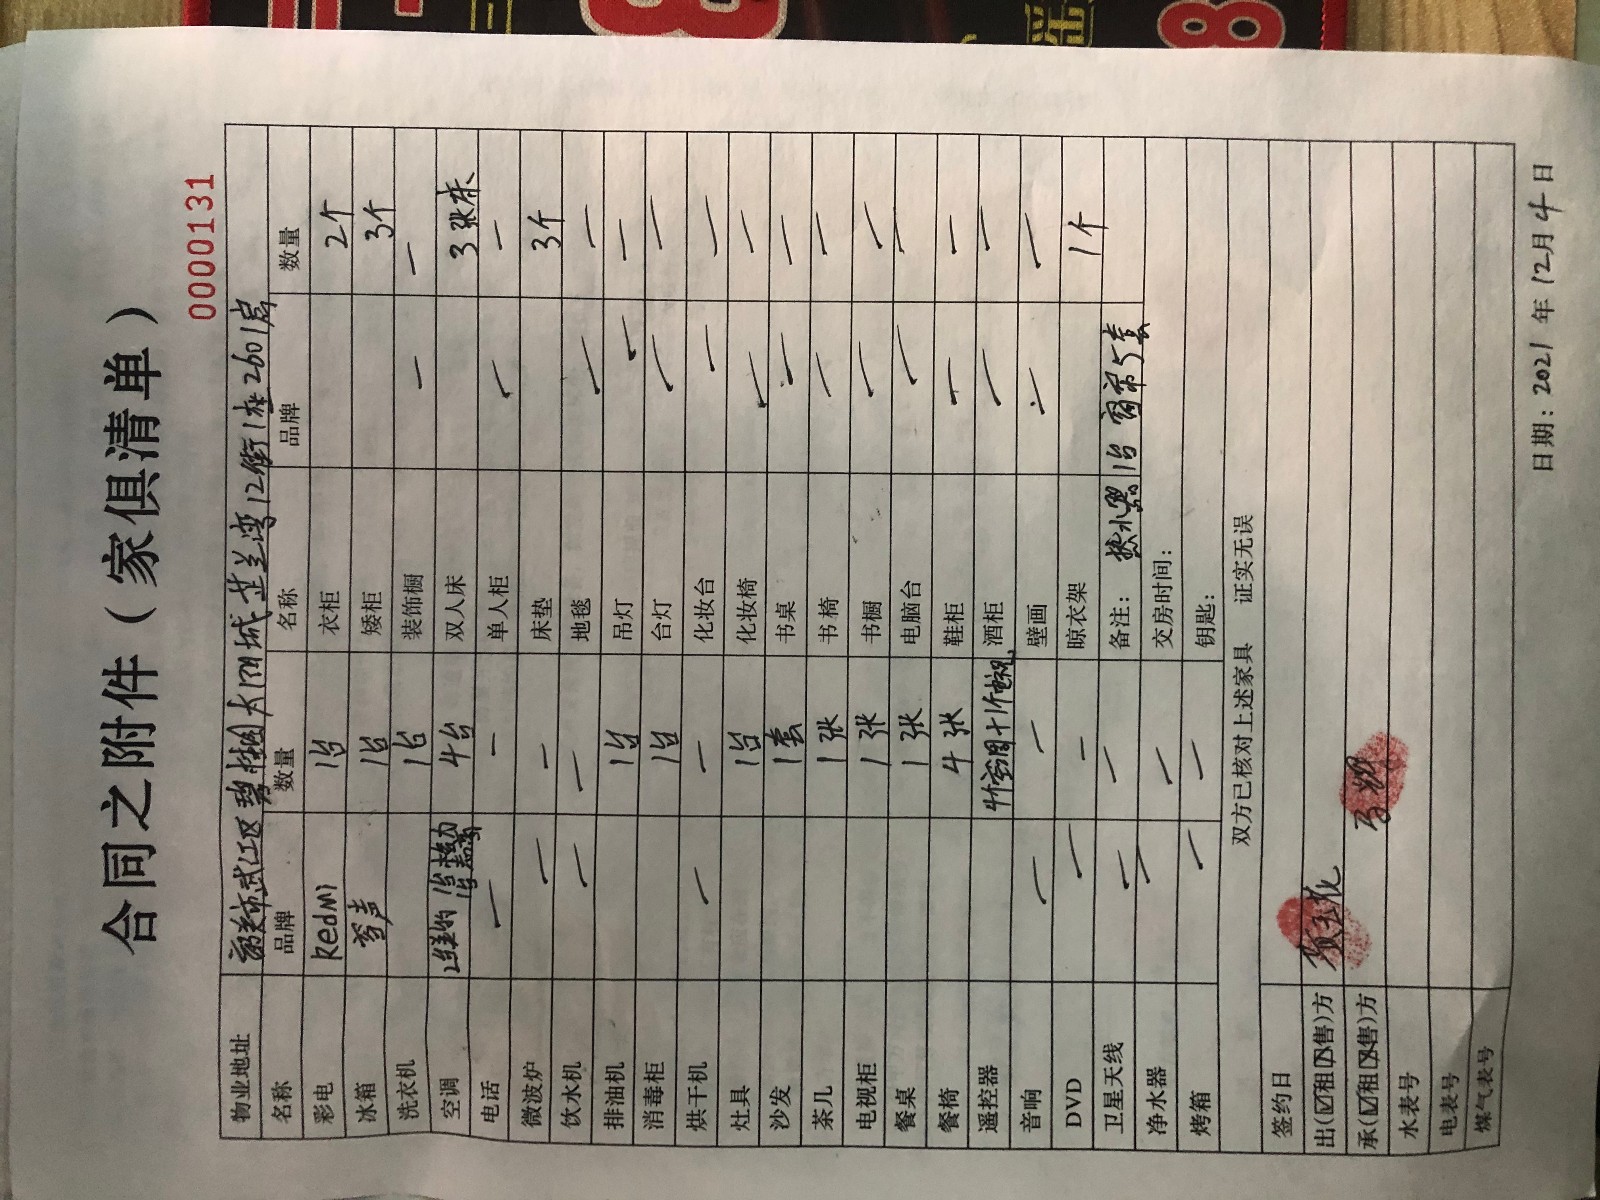 合同之附件（家俱清单）
0000131
物业地址 韶关市武江区碧桂园太阳城芷兰湾12街1座2601房
名称 品牌 数量 名称 品牌 数量
彩电 Redmi 1台 衣柜 2个
冰箱 容声 1台 矮柜 3个
洗衣机 1台 装饰橱 — —
空调 2台美的 1台 1台 4台 双人床 3张床
电话 — — 单人柜 — —
微波炉 — — 床垫 3个
饮水机 — — 地毯 — —
排油机 1台 吊灯 — —
消毒柜 1台 台灯 — —
烘干机 — — 化妆台 — —
灶具 1台 化妆椅 — —
沙发 1套 书桌 — —
茶几 1张 书椅 — —
电视柜 1张 书橱 — —
餐桌 1张 电脑台 — —
餐椅 4张 鞋柜 — —
遥控器 4个空调+1个电视 酒柜 — —
音响 — — 壁画 — —
DVD — — 晾衣架 1个
卫星天线 — — 备注: 热水器1台 窗帘5套
净水器 — — 交房时间:
烤箱 — — 钥匙:
双方已核对上述家具 证实无误
签约日
出(☑租☒售)方
承(☑租☒售)方
水表号
电表号
煤气表号
日期: 2021年12月4日